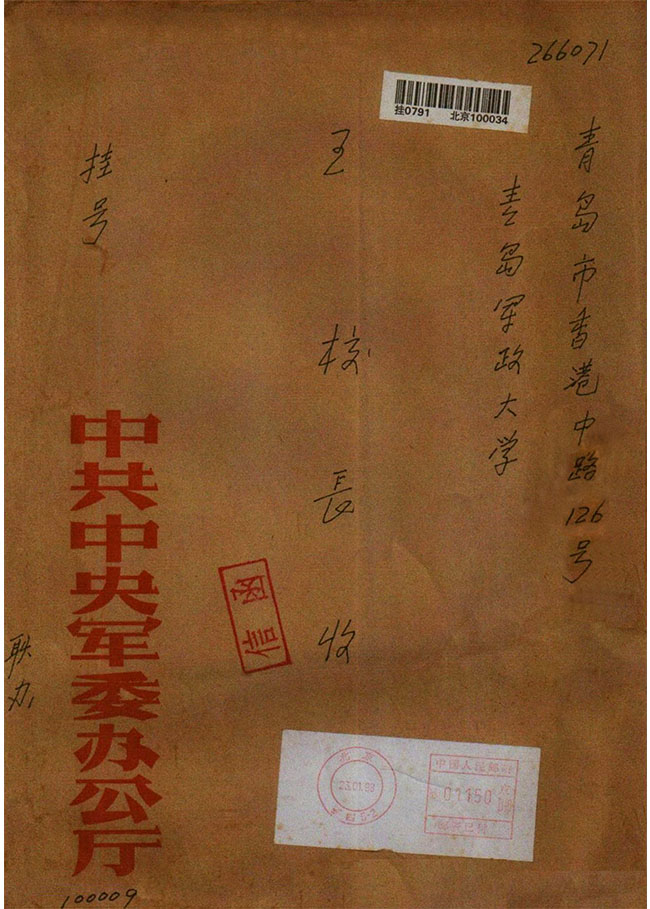 266071
挂0791 北京100034
青岛市香港中路126号
青岛军政大学
王校長收
挂号
中共中央军委办公厅
联办
100009
信函
北京
23.01.98
中国人民邮政
01150